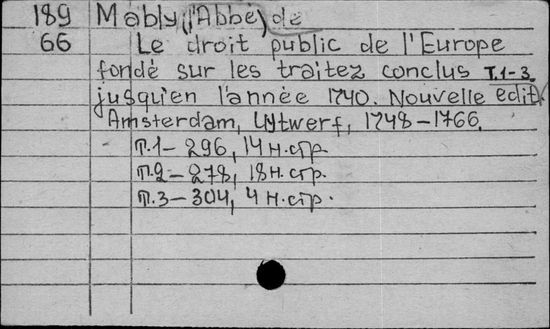 189 Mably (l'Abbé) de
66 Le droit public de l'Europe
fondé sur les traitez conclus T.1-3.
jusqu'en l'année 1740. Nouvelle edit.
Amsterdam, Uytwerf, 1748-1766.
Т.1- 296, 14 н.стр.
Т.2- 278, 18 н.стр.
Т.3- 304, 4 н.стр.